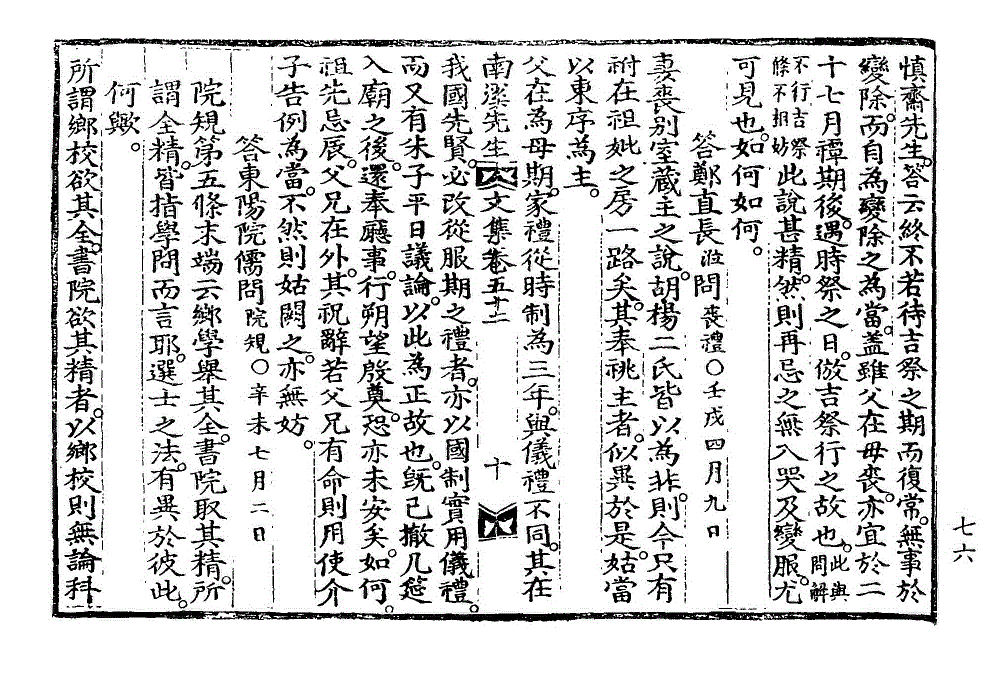 慎齋先生。答云終不若待吉祭之期而復常。無事於
變除。而自為變除之為當。盖雖父在母喪。亦宜於二
十七月禫期後。遇時祭之日。倣吉祭行之故也。此與問解
不行吉祭條不相妨此說甚精。然則再忌之無八哭及變服。尤
可見也。如何如何。
答鄭直長 問喪禮○壬戌四月九日
妻喪別室蔵主之說。胡楊二氏皆以為非。則今只有
祔在祖妣之房一路矣。其奉祧主者。似異於是。姑當
以東序為主。
父在為母期。家禮從時制為三年。與儀禮不同。其在
南溪先生文集卷五十二 十
我國先賢。必改從服期之禮者。亦以國制實用儀禮。
而又有朱子平日議論。以此為正故也。旣已撤几筵
入廟之後。還奉廳事。行朔望殷奠。恐亦未安矣。如何。
祖先忌辰。父兄在外。其祝辭若父兄有命則用使介
子告例為當。不然則姑闕之。亦無妨。
答東陽院儒問院規○辛未七月二日
院規第五條末端云鄉學舉其全。書院取其精。所
謂全精。皆指學問而言耶。選士之法。有異於彼此。
何歟。
所謂鄉校欲其全。書院欲其精者。以鄉校則無論科
七六